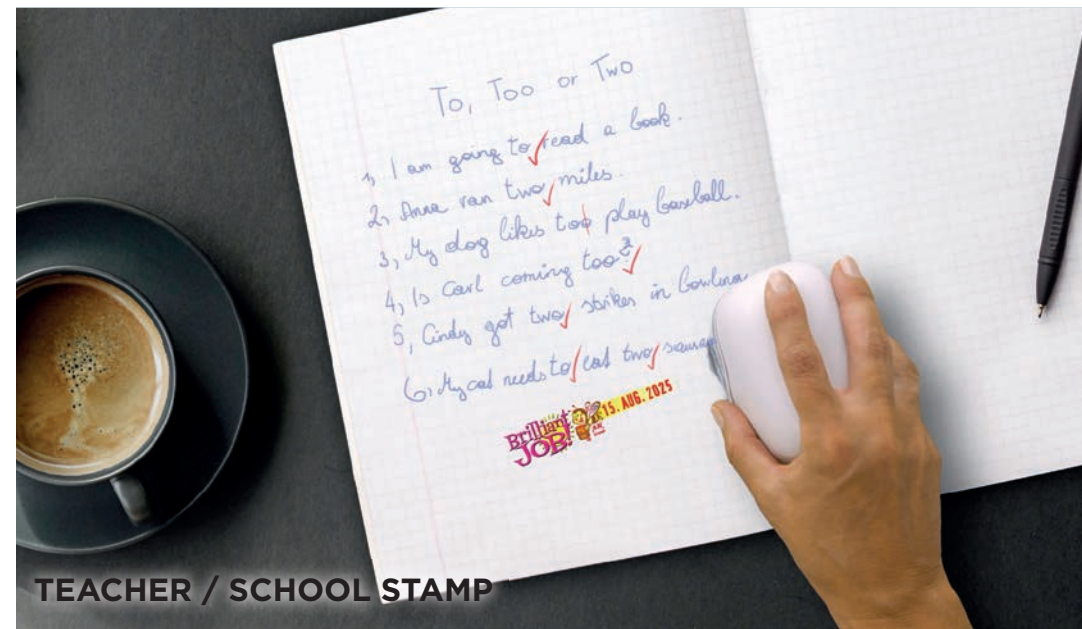 To, Too or Two
1, I am going to read a book.
2, Anna ran two miles.
3, My dog likes too play baseball.
4, Is Carl coming too?
5, Cindy got two strikes in bowling
6, My cat needs to eat two
Brilliant JOB! 15. AUG. 2025
TEACHER / SCHOOL STAMP